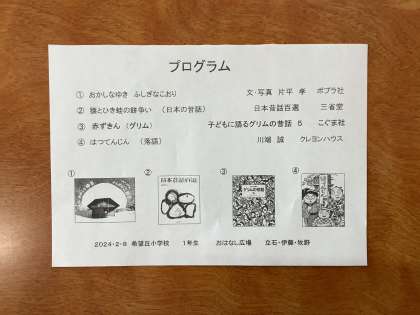 プログラム
① おかしなゆき ふしぎなこおり 文・写真 片平 孝 ポプラ社
② 猿とひき蛙の餅争い (日本の昔話) 日本昔話百選 三省堂
③ 赤ずきん (グリム) 子どもに語るグリムの昔話 5 こぐま社
④ はつてんじん (落語) 川端 誠 クレヨンハウス
① ② ③ ④
日本昔話百選
グリムの昔話
2024・2・8 希望丘小学校 1年生 おはなし広場 立石・伊藤・牧野